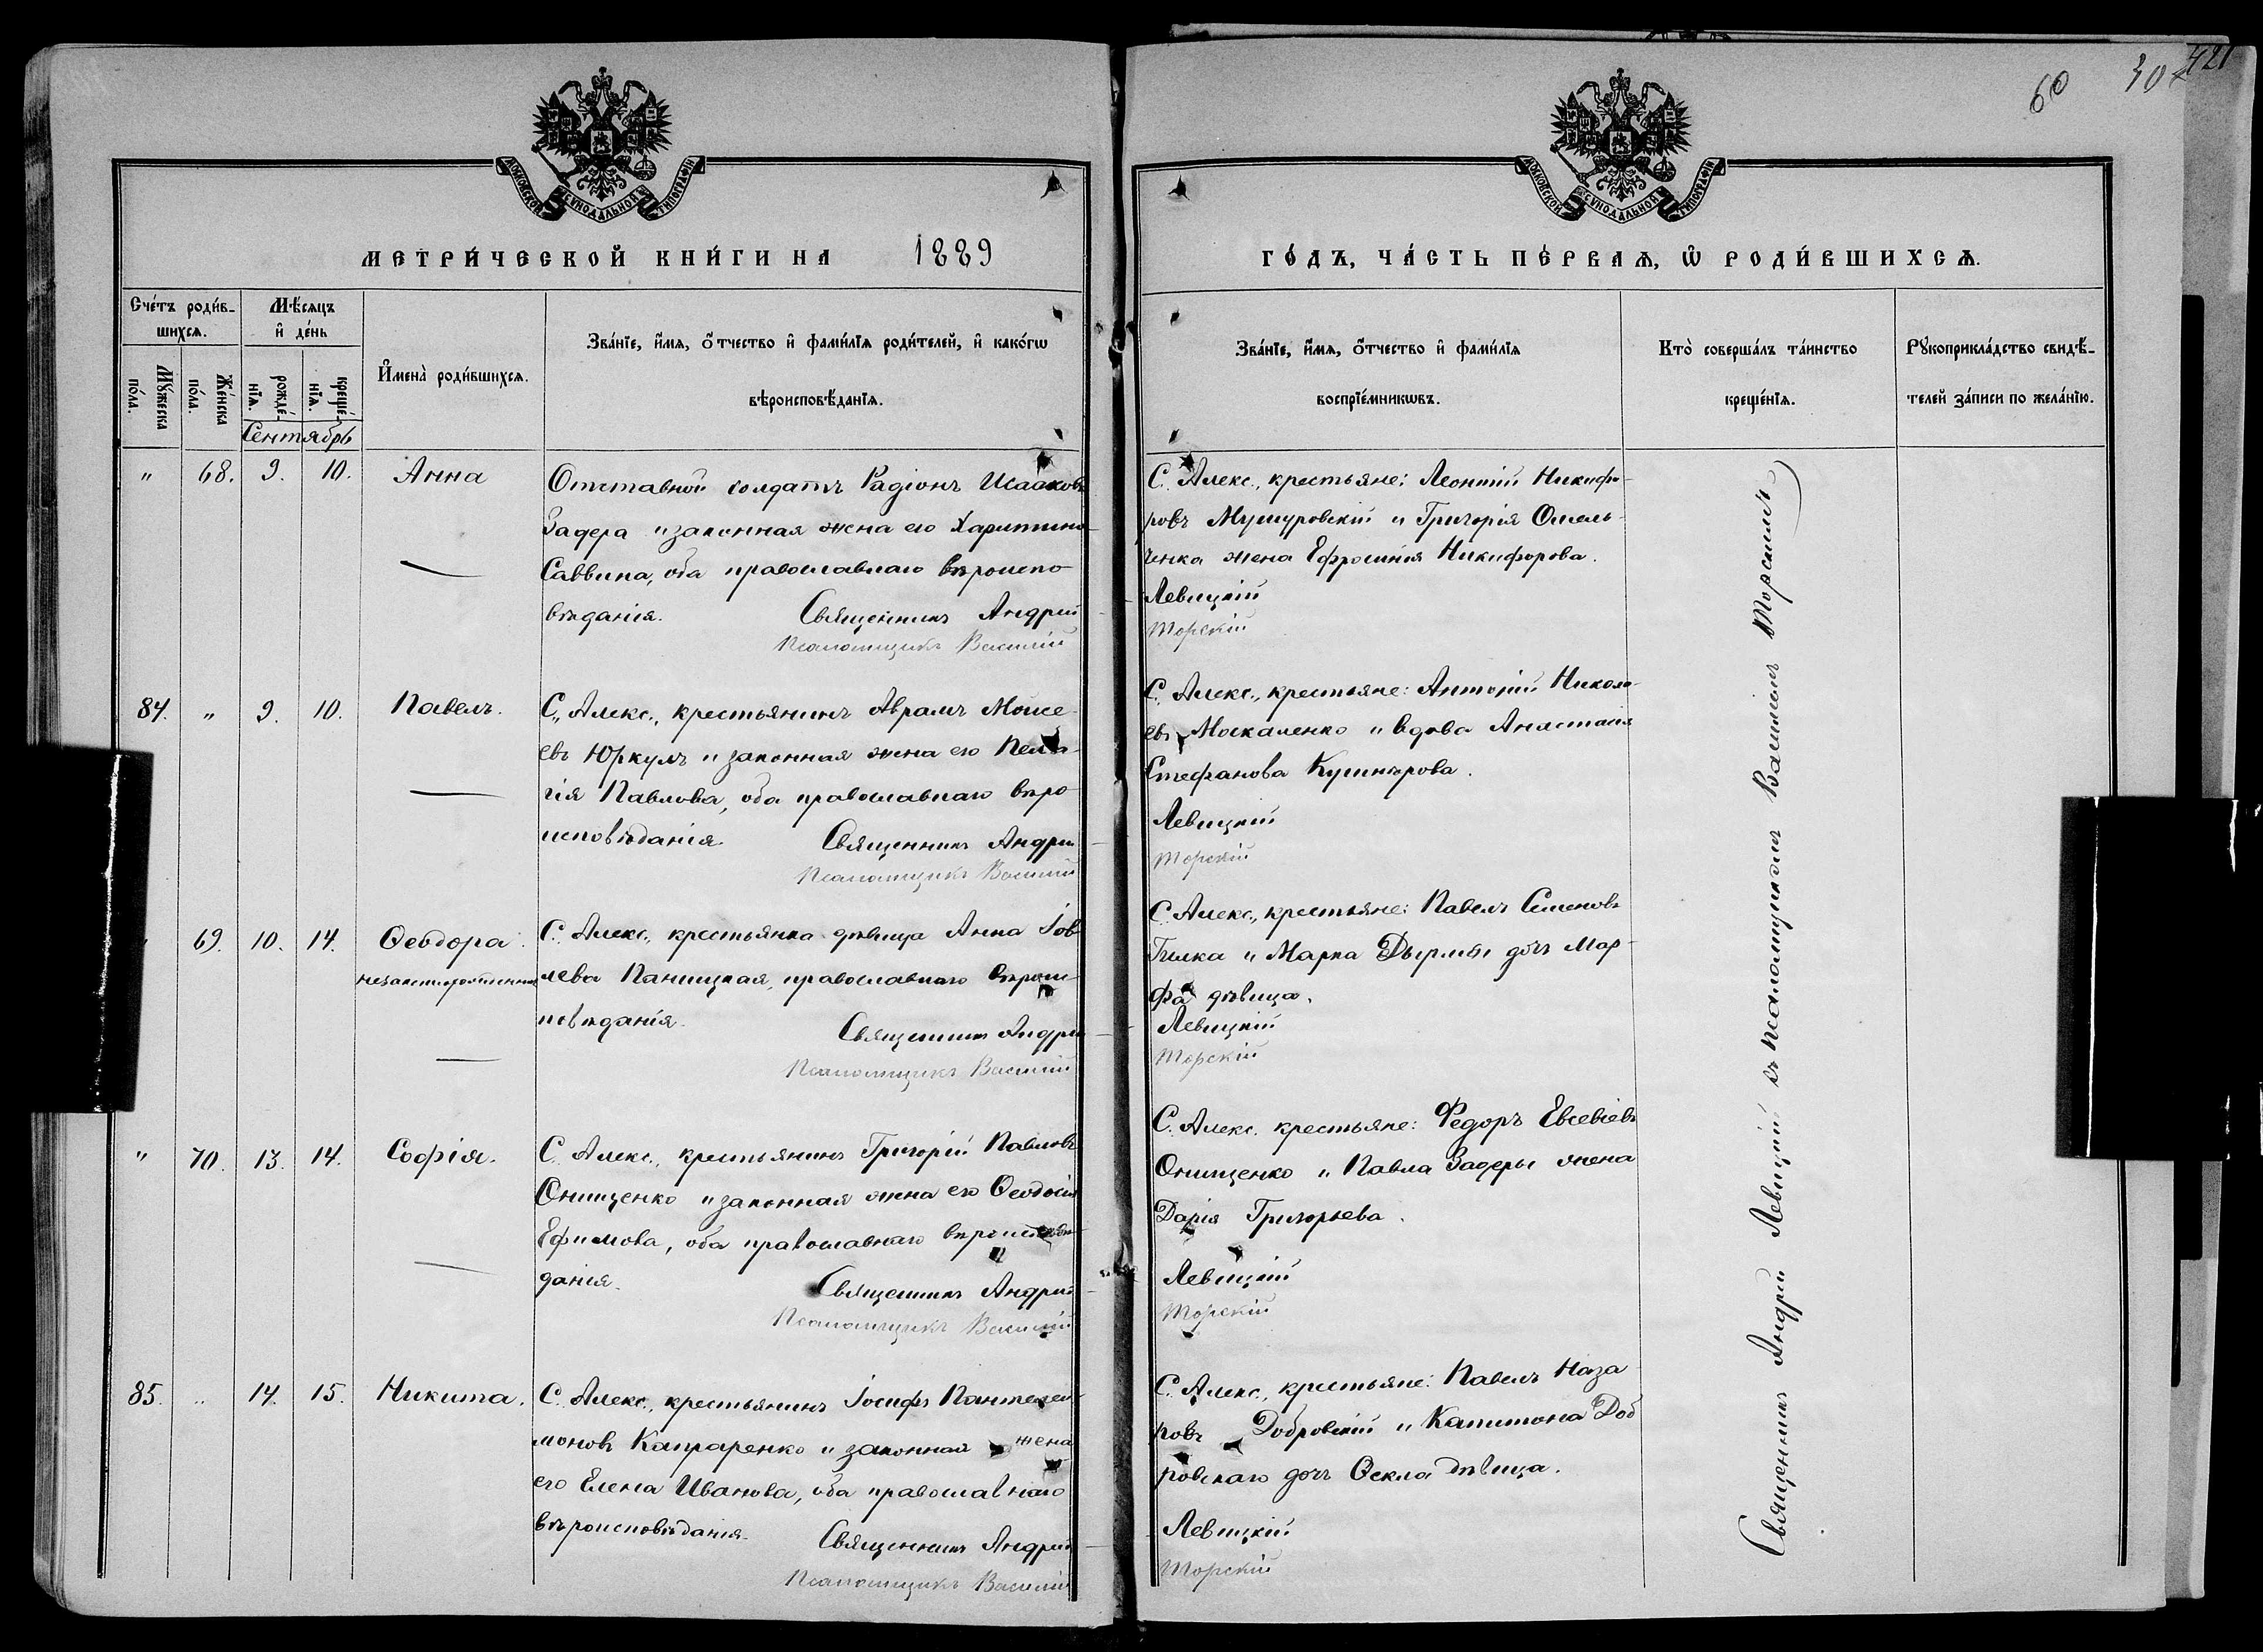 60
30
421
МОСКОВСКОЙ СѴНОДАЛЬНОЙ ТИПОГРАФІИ
МОСКОВСКОЙ СѴНОДАЛЬНОЙ ТИПОГРАФІИ
МЕТРИ́ЧЕСКОЙ КНИ́ГИ НА 1889
ГО́ДЪ, ЧА́СТЬ ПЕ́РВАѦ, Ѡ РОДИ́ВШИХСѦ.
Сче́тъ роди́в-
шихсѧ.
Мѣ́сѧцъ
и҆ де́нь
Мꙋ́жеска
по́ла.
Же́нска
по́ла.
рожде́-
нїѧ.
креще́-
нїѧ.
Сентябрь
И҆мена̀ роди́вшихсѧ.
Зва́нїе, и҆́мѧ, ѻ҆́тчество и҆ фами́лїѧ роди́телей, и҆ како́гѡ
вѣроисповѣ́данїѧ.
Зва́нїе, и҆́мѧ, ѻ҆́тчество и҆ фами́лїѧ
воспрїе́мникѡвъ.
Кто̀ соверша́лъ та́инство
креще́нїѧ.
Рꙋкоприкла́дство свидѣ́-
телей за́писи по жела́нїю.
„ 68. 9. 10. Анна
Отставной солдатъ Радіонъ Исааковъ
Задера и законная жена его Харитина
Саввина, оба православнаго вѣроиспо-
вѣданія. Священникъ Андрей
Псаломщикъ Василій
С. Алекс., крестьяне: Леонтій Никифо-
ровъ Мушуровскій и Григорія Омель-
ченка жена Ефросинія Никифорова.
Левицкій
Торскій
84. „ 9. 10. Павелъ.
С. Алекс., крестьянинъ Аврамъ Моисе-
евъ Юркулъ и законная жена его Пела-
гія Павлова, оба православнаго вѣро-
исповѣданія. Священникъ Андрей
Псаломщикъ Василій
С. Алекс., крестьяне: Антоній Никола-
евъ Москаленко и вдова Анастасія
Стефанова Кушнѣрова.
Левицкій
Торскій
69. 10. 14. Ѳеодора
незаконнорожденная
С. Алекс., крестьянка дѣвица Анна Іов-
лева Паницкая, православнаго вѣрои-
повѣданія. Священникъ Андрей
Псаломщикъ Василій
С. Алекс., крестьяне: Павелъ Семеновъ
и Марка Дырлы дочь Мар-
фа дѣвица.
Левицкій
Торскій
„ 70. 13. 14. Софія.
С. Алекс., крестьянинъ Григорій Павловъ
Онищенко и законная жена его Ѳеодосія
Ефимова, оба православнаго вѣроисповѣ-
данія. Священникъ Андрей
Псаломщикъ Василій
С. Алекс. крестьяне: Федоръ Евсевіевъ
Онищенко и Павла Задеры жена
Дарія Григорьева.
Левицкій
Торскій
85. „ 14. 15. Никита.
С. Алекс., крестьянинъ Іосифъ Пантелеи-
моновъ Капраренко и законная жена
его Елена Иванова, оба православнаго
вѣроисповѣданія. Священникъ Андрей
Псаломщикъ Василій
С. Алекс., крестьяне: Павелъ Наза-
ровъ Добровскій и Капитона Доб-
ровскаго дочь Ѳекла дѣвица.
Левицкій
Торскій
Священникъ Андрей Левицкій съ псаломщикомъ Василіемъ Торскимъ